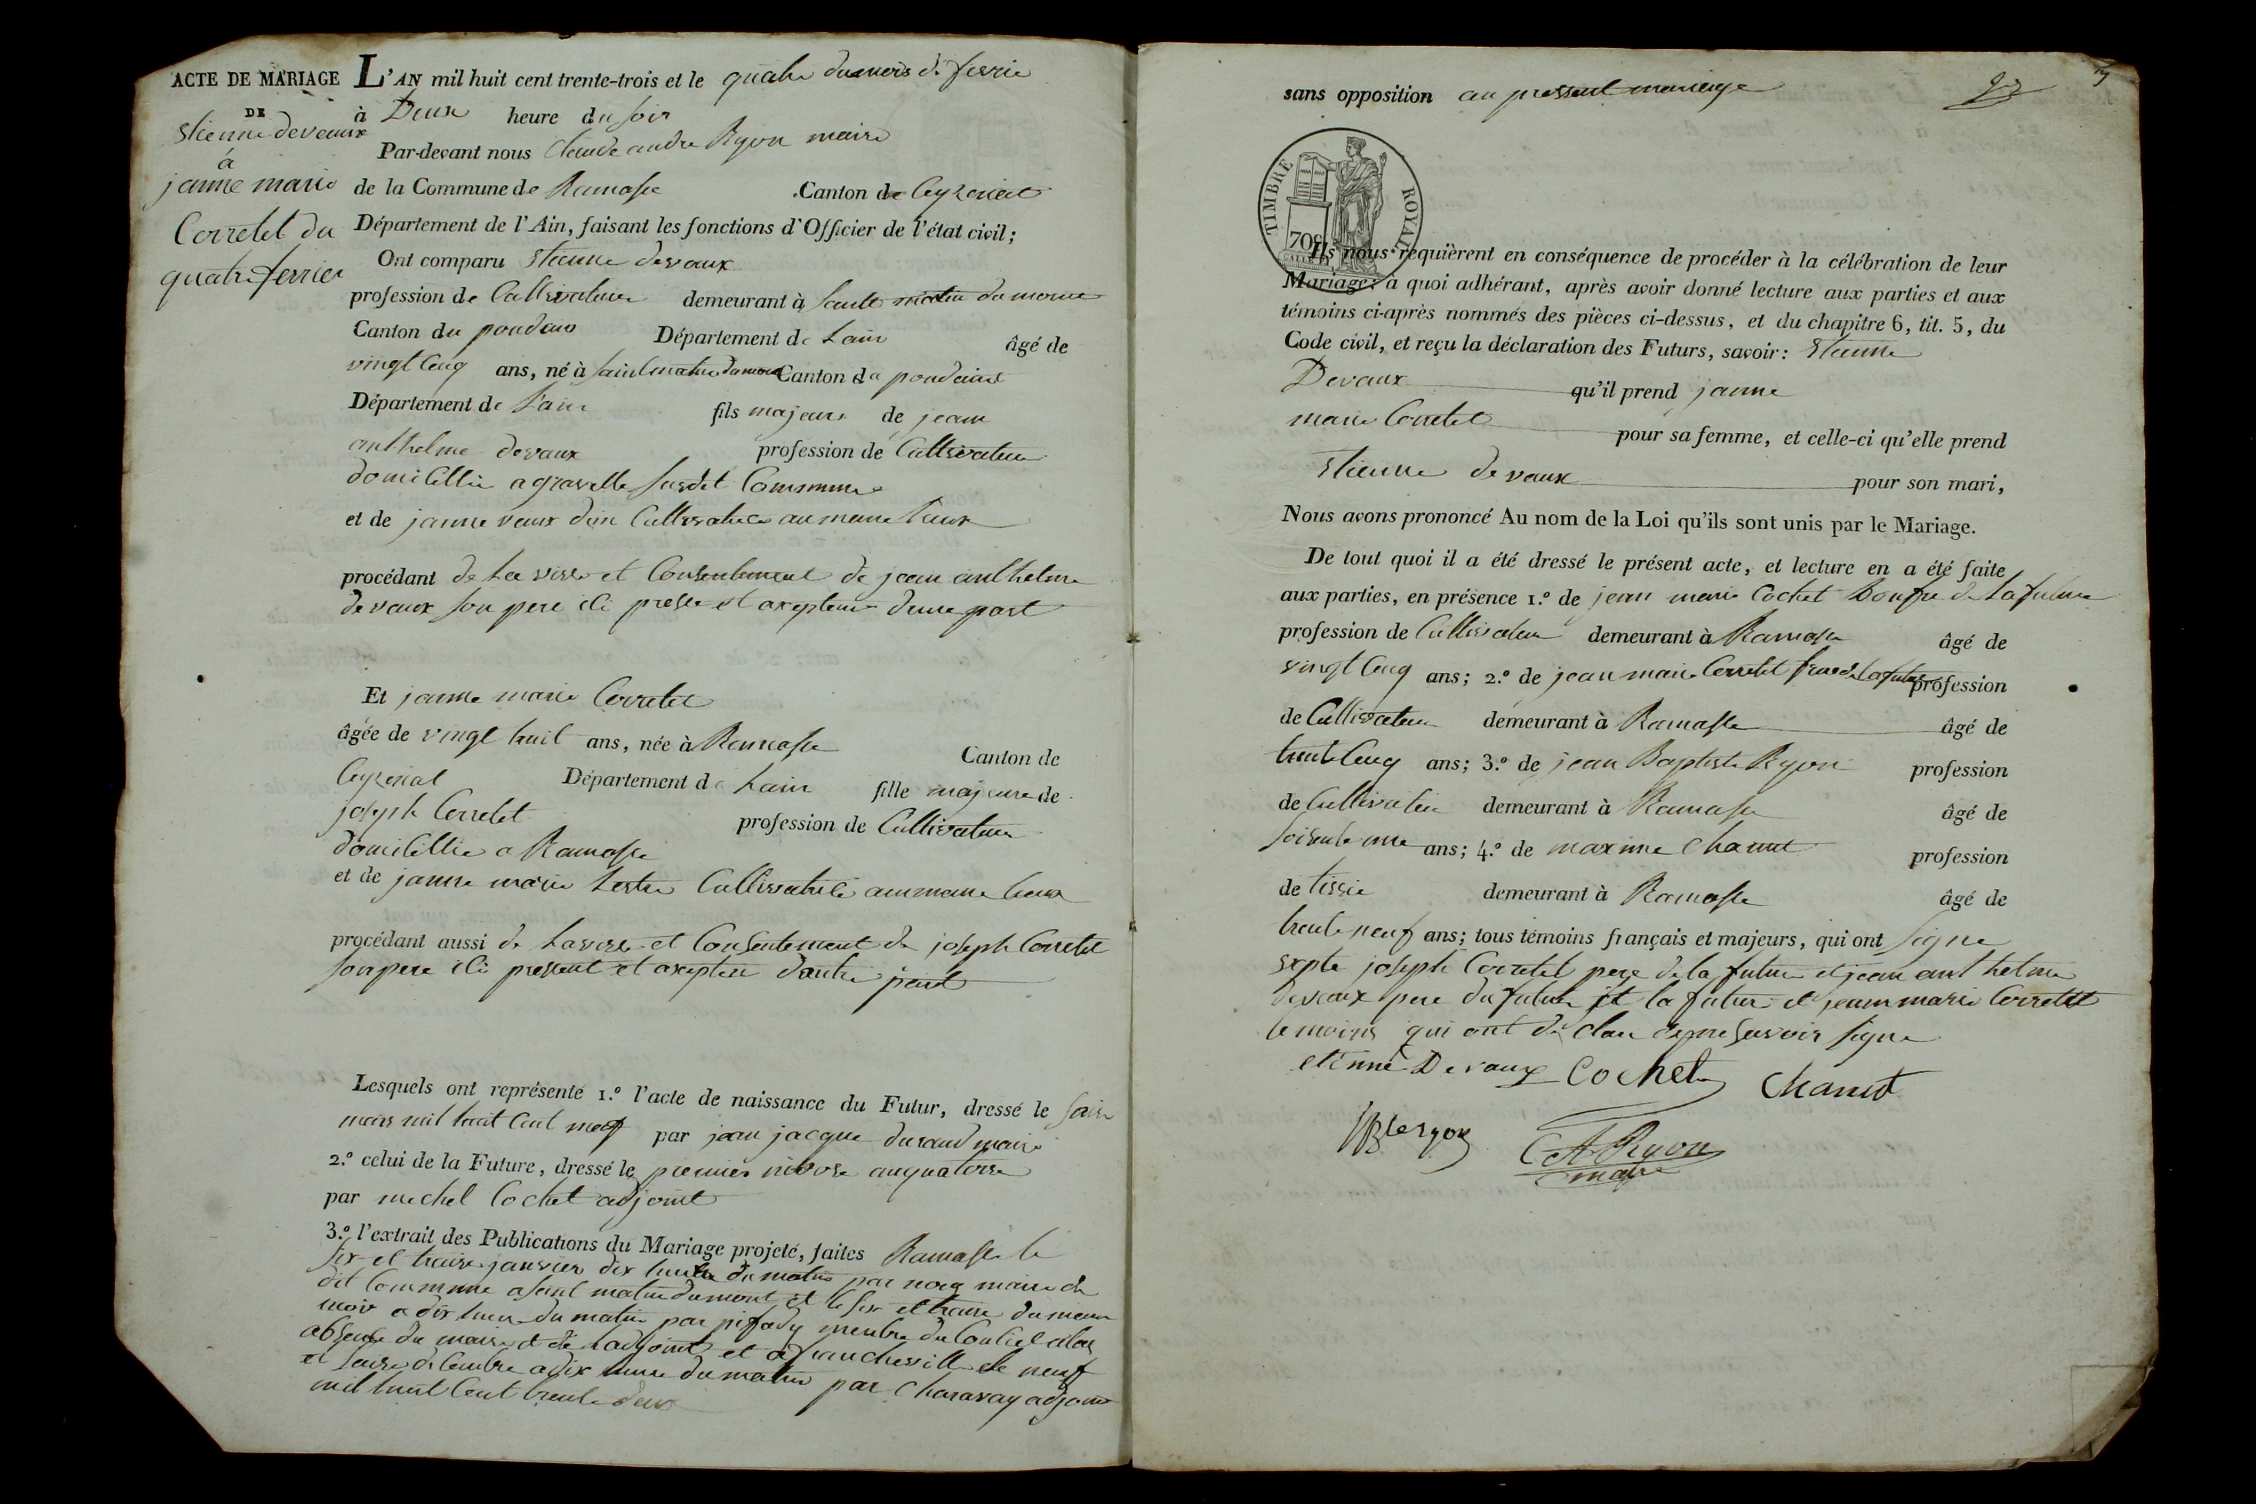 ACTE DE MARIAGE
DE
Etienne devaux
à
janne marie
Corretel du
quatre fevrier
L'AN mil huit cent trente-trois et le quatre du mois de fevrie
à Deux heure du soir
Par-devant nous Claude andre Ryon maire
de la Commune de Ramasse Canton de Ceyzeriat
Département de l'Ain, faisant les fonctions d'Officier de l'état civil;
Ont comparu Etienne devaux
profession de Cultivateur demeurant à saint matin du mont
Canton du pondein Département de Lain âgé de
vingt Cenq ans, né à saint matin du mont Canton du pondein
Département de Lain fils majeure de jean
anthelme devaux profession de Cultivateur
domicillie a gravelle susdit Commune
et de janne vaux din Cultivatrice au meme lieux
procédant de La vise et Consentement de jean anthelme
devaux son pere ici presse et axepteur d'une part
Et janne marie Corretel
âgée de vingt huit ans, née à Ramasse Canton de
Ceyzeriat Département de Lain fille majeure de
joseph Corretel profession de Cultivateur
domicillie a Ramasse
et de janne marie Cultivatrice au meme lieux
procédant aussi de Lavise et Consentement de joseph Corretel
son pere ici pressent et axepteur dautre part
Lesquels ont représenté 1.º l'acte de naissance du Futur, dressé le
mars mil huit Cent neuf par jean jacque durand maire
2.º celui de la Future, dressé le premier nivose an quatorse
par michel Cochet adjoint
3.º l'extrait des Publications du Mariage projeté, faites Ramasse le
six et traise janvier dix heure du matin par nous maire de
dit Commune a saint matin du mont et le six et traise du meme
mois a dix heure du matin par pifady menbre du Conseil alor
absence du maire et de Ladjoint et a francheville le neuf
et saise desenbre a dix heure du matin par Charavay adjoint
mil huit Cent trente deux
sans opposition au pressent mariage
TIMBRE ROYAL
70c
Ils nous requièrent en conséquence de procéder à la célébration de leur
Mariage: à quoi adhérant, après avoir donné lecture aux parties et aux
témoins ci-après nommés des pièces ci-dessus, et du chapitre 6, tit. 5, du
Code civil, et reçu la déclaration des Futurs, savoir: Etienne
Devaux qu'il prend janne
marie Corretel pour sa femme, et celle-ci qu'elle prend
Etienne devaux pour son mari,
Nous avons prononcé Au nom de la Loi qu'ils sont unis par le Mariage.
De tout quoi il a été dressé le présent acte, et lecture en a été faite
aux parties, en présence 1.º de jean marie Cochet Boufre de La future
profession de Cultivateur demeurant à Ramasse âgé de
vingt Cenq ans; 2.º de jean marie Corretel frere de La future profession
de Cultivateur demeurant à Ramasse âgé de
trente Cenq ans; 3.º de jean Baptiste Ryon profession
de Cultivateur demeurant à Ramasse âgé de
soisente une ans; 4.º de maxime Chanut profession
de tissie demeurant à Ramasse âgé de
trente neuf ans; tous témoins français et majeurs, qui ont signe
expte joseph Corretel pere de la future et jean anthelme
devaux pere du future et la future et jeann marie Corretel
temoins qui ont de clare de ne savoir signe
etienne Devaux Cochet Chanut
JB Ryon
CA Ryon
maire